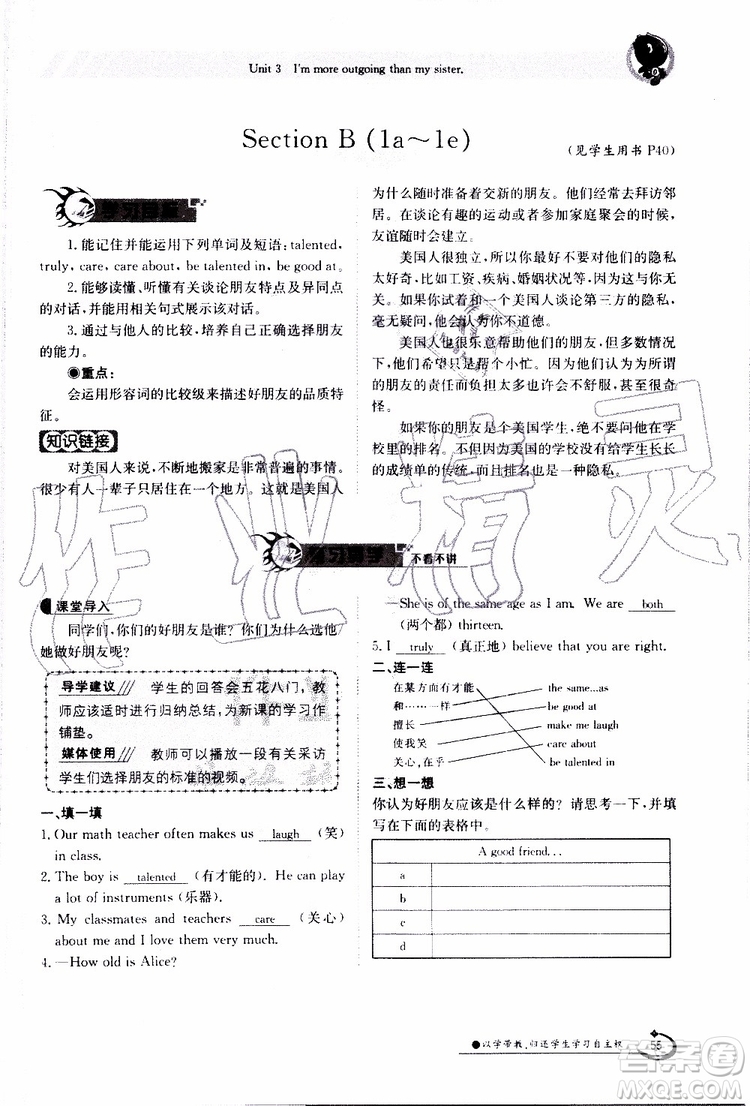 Unit 3 I'm more outgoing than my sister.
Section B (1a～1e)
(见学生用书 P40)
学习目标
1.能记住并能运用下列单词及短语:talented,
truly, care, care about, be talented in, be good at。
2.能够读懂、听懂有关谈论朋友特点及异同点
的对话,并能用相关句式展示该对话。
3.通过与他人的比较,培养自己正确选择朋友
的能力。
◉重点:
会运用形容词的比较级来描述好朋友的品质特
征。
知识链接
对美国人来说,不断地搬家是非常普遍的事情。
很少有人一辈子只居住在一个地方。这就是美国人
为什么随时准备着交新的朋友。他们经常去拜访邻
居。在谈论有趣的运动或者参加家庭聚会的时候,
友谊就会建立。
美国人很独立,所以不要对他们的隐私
太好奇,比如工资、疾病、婚姻状况等一些问题。
如果你试着和一个美国人谈论第三方的隐私,
毫无疑问,他会认为你不道德。
美国人也很乐意帮助朋友,但多数情况
下,他们希望只是帮个小忙。如果因为所谓
的朋友的责任而让他们不舒服,他们会感到奇
怪。
如果你的朋友是个美国学生,绝不要问他在学
校里的排名。不但因为美国的学校没有给学生长长
的成绩单的传统,而且排名也是一种隐私。
预习导学 不看不讲
课堂导入
同学们,你们的好朋友是谁?你们为什么选他/
她做好朋友呢?
导学建议 学生的回答会五花八门,教
师应该适时进行归纳总结,为新课的学习作
铺垫。
媒体使用 教师可以播放一段有关采访
学生们选择朋友的标准的视频。
一、填一填
1. Our math teacher often makes us laugh (笑)
in class.
2. The boy is talented (有才能的). He can play
a lot of instruments(乐器).
3. My classmates and teachers care (关心)
about me and I love them very much.
4. —How old is Alice?
—She is of the same age as I am. We are both
(两个都) thirteen.
5. I truly (真正地) believe that you are right.
二、连一连
在某方面有才能 the same...as
和……一样 be good at
擅长 make me laugh
使我笑 care about
关心,在乎 be talented in
三、想一想
你认为好朋友应该是什么样的?请思考一下,并填
写在下面的表格中。
A good friend...
a
b
c
d
◉以学带教,归还学生学习自主权
55
作业精灵
答案圈
MXQE.COM